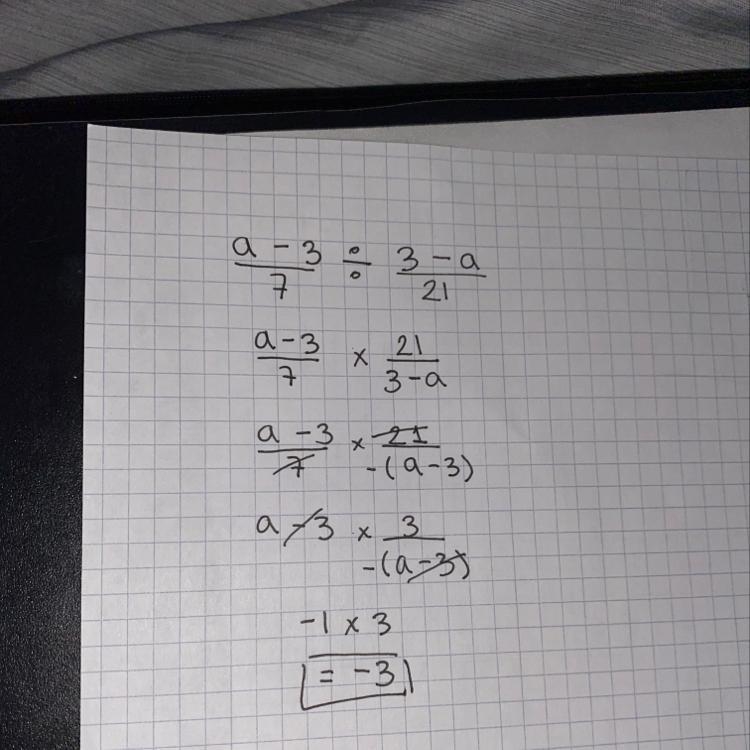 a - 3 / 7 ÷ 3 - a / 21
a - 3 / 7 × 21 / 3 - a
a - 3 / 7 × 21 / -(a - 3)
a - 3 × 3 / -(a - 3)
-1 × 3
= -3